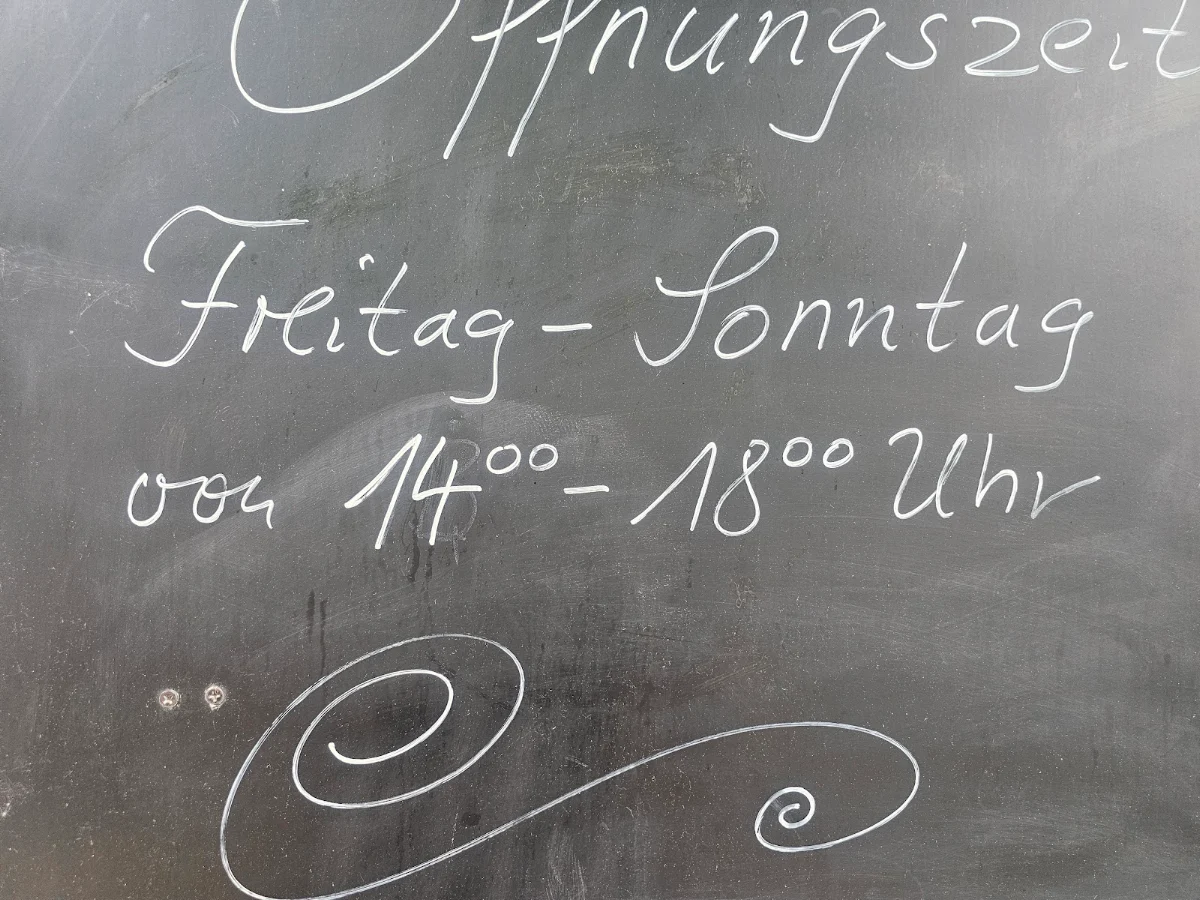 Öffnungszeit
Freitag - Sonntag
von 14⁰⁰ - 18⁰⁰ Uhr